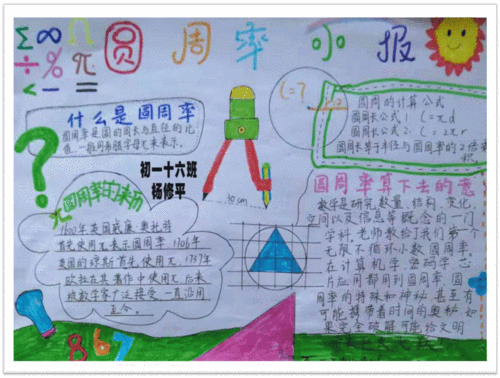 Σ ∞ ∩
÷ % π
< - =
圆周率小报
什么是圆周率
圆周率是圆的周长与直径的比
值,一般用希腊字母π来表示。
初一十六班
杨修平
10cm
C=?
圆周的计算公式
圆周长公式1: C=πd
圆周长公式2: C=2πr
圆周长等于半径与圆周率的2倍乘
积。
π圆周率的来历
1600年英国威廉·奥托特
首先使用π来表示圆周率 1706年
英国的琼斯首先使用π,1737年
欧拉在其著作中使用π后来
被数学家广泛接受一直沿用
至今。
圆周率算下去的意
数学是研究数量、结构、变化、
空间以及信息等概念的一门
学科,老师教给了我们第一个
无限不循环小数圆周率
在计算机学、密码学、芯
片应用都用到圆周率,圆
周率的特殊和神秘甚至有
可能携带者时间的奥秘如
果完全破解可能给文明
867